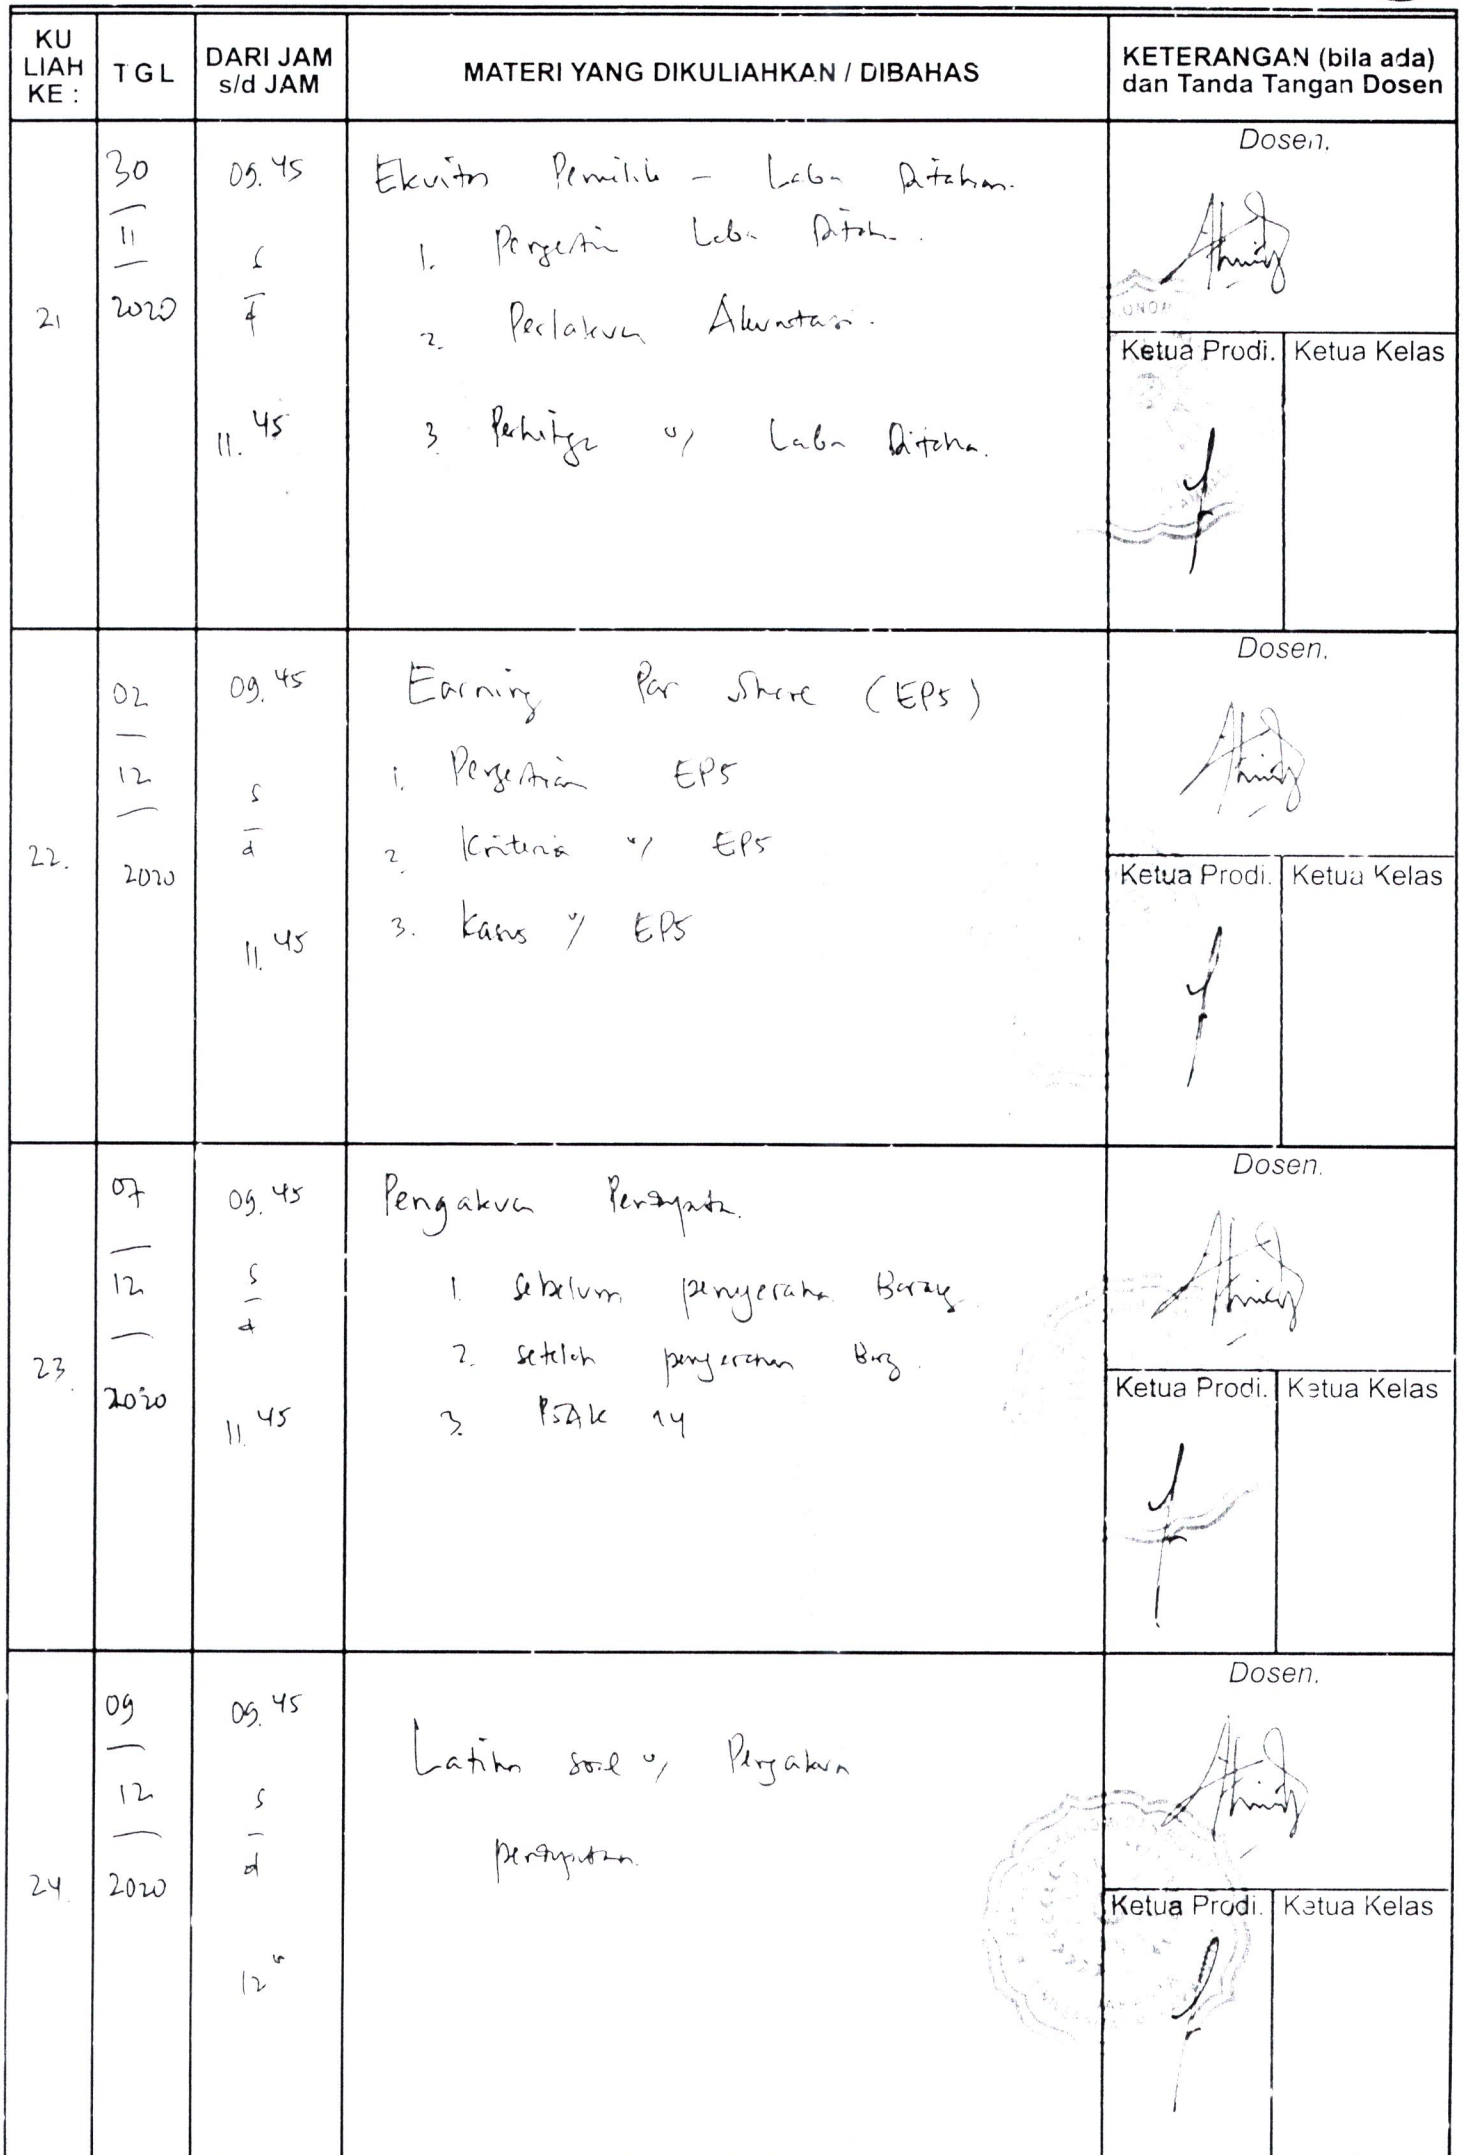 KU
LIAH
KE :
TGL
DARI JAM
s/d JAM
MATERI YANG DIKULIAHKAN / DIBAHAS
KETERANGAN (bila ada)
dan Tanda Tangan Dosen
21
30
11
2020
09.45
s
d
11.45
Ekuitas Pemilik - Laba Ditahan.
1. Pengertian Laba Ditahan.
2. Perlakuan Akuntansi.
3. u/ Laba Ditahan.
Dosen.
Ketua Prodi.
Ketua Kelas
22.
02
12
2020
09.45
s
d
11.45
Earning Per Share (EPS)
1. Pengertian EPS
2. Kriteria u/ EPS
3. Kasus u/ EPS
Dosen.
Ketua Prodi.
Ketua Kelas
23.
07
12
2020
09.45
s
d
11.45
Pengakuan Pendapatan.
1. Sebelum penyerahan Barang
2. setelah penyerahan Brg.
3. PSAK 14
Dosen.
Ketua Prodi.
Ketua Kelas
24.
09
12
2020
09.45
s
d
12
Latihan soal u/ Pengakuan
pendapatan.
Dosen.
Ketua Prodi.
Ketua Kelas